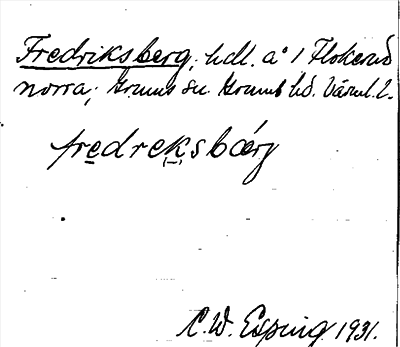 Fredriksberg, hdl. å 1 Flokerud
norra; Grums sn Grums hd. Värml. l.
fredreksbærg
C. W. Esping 1931.